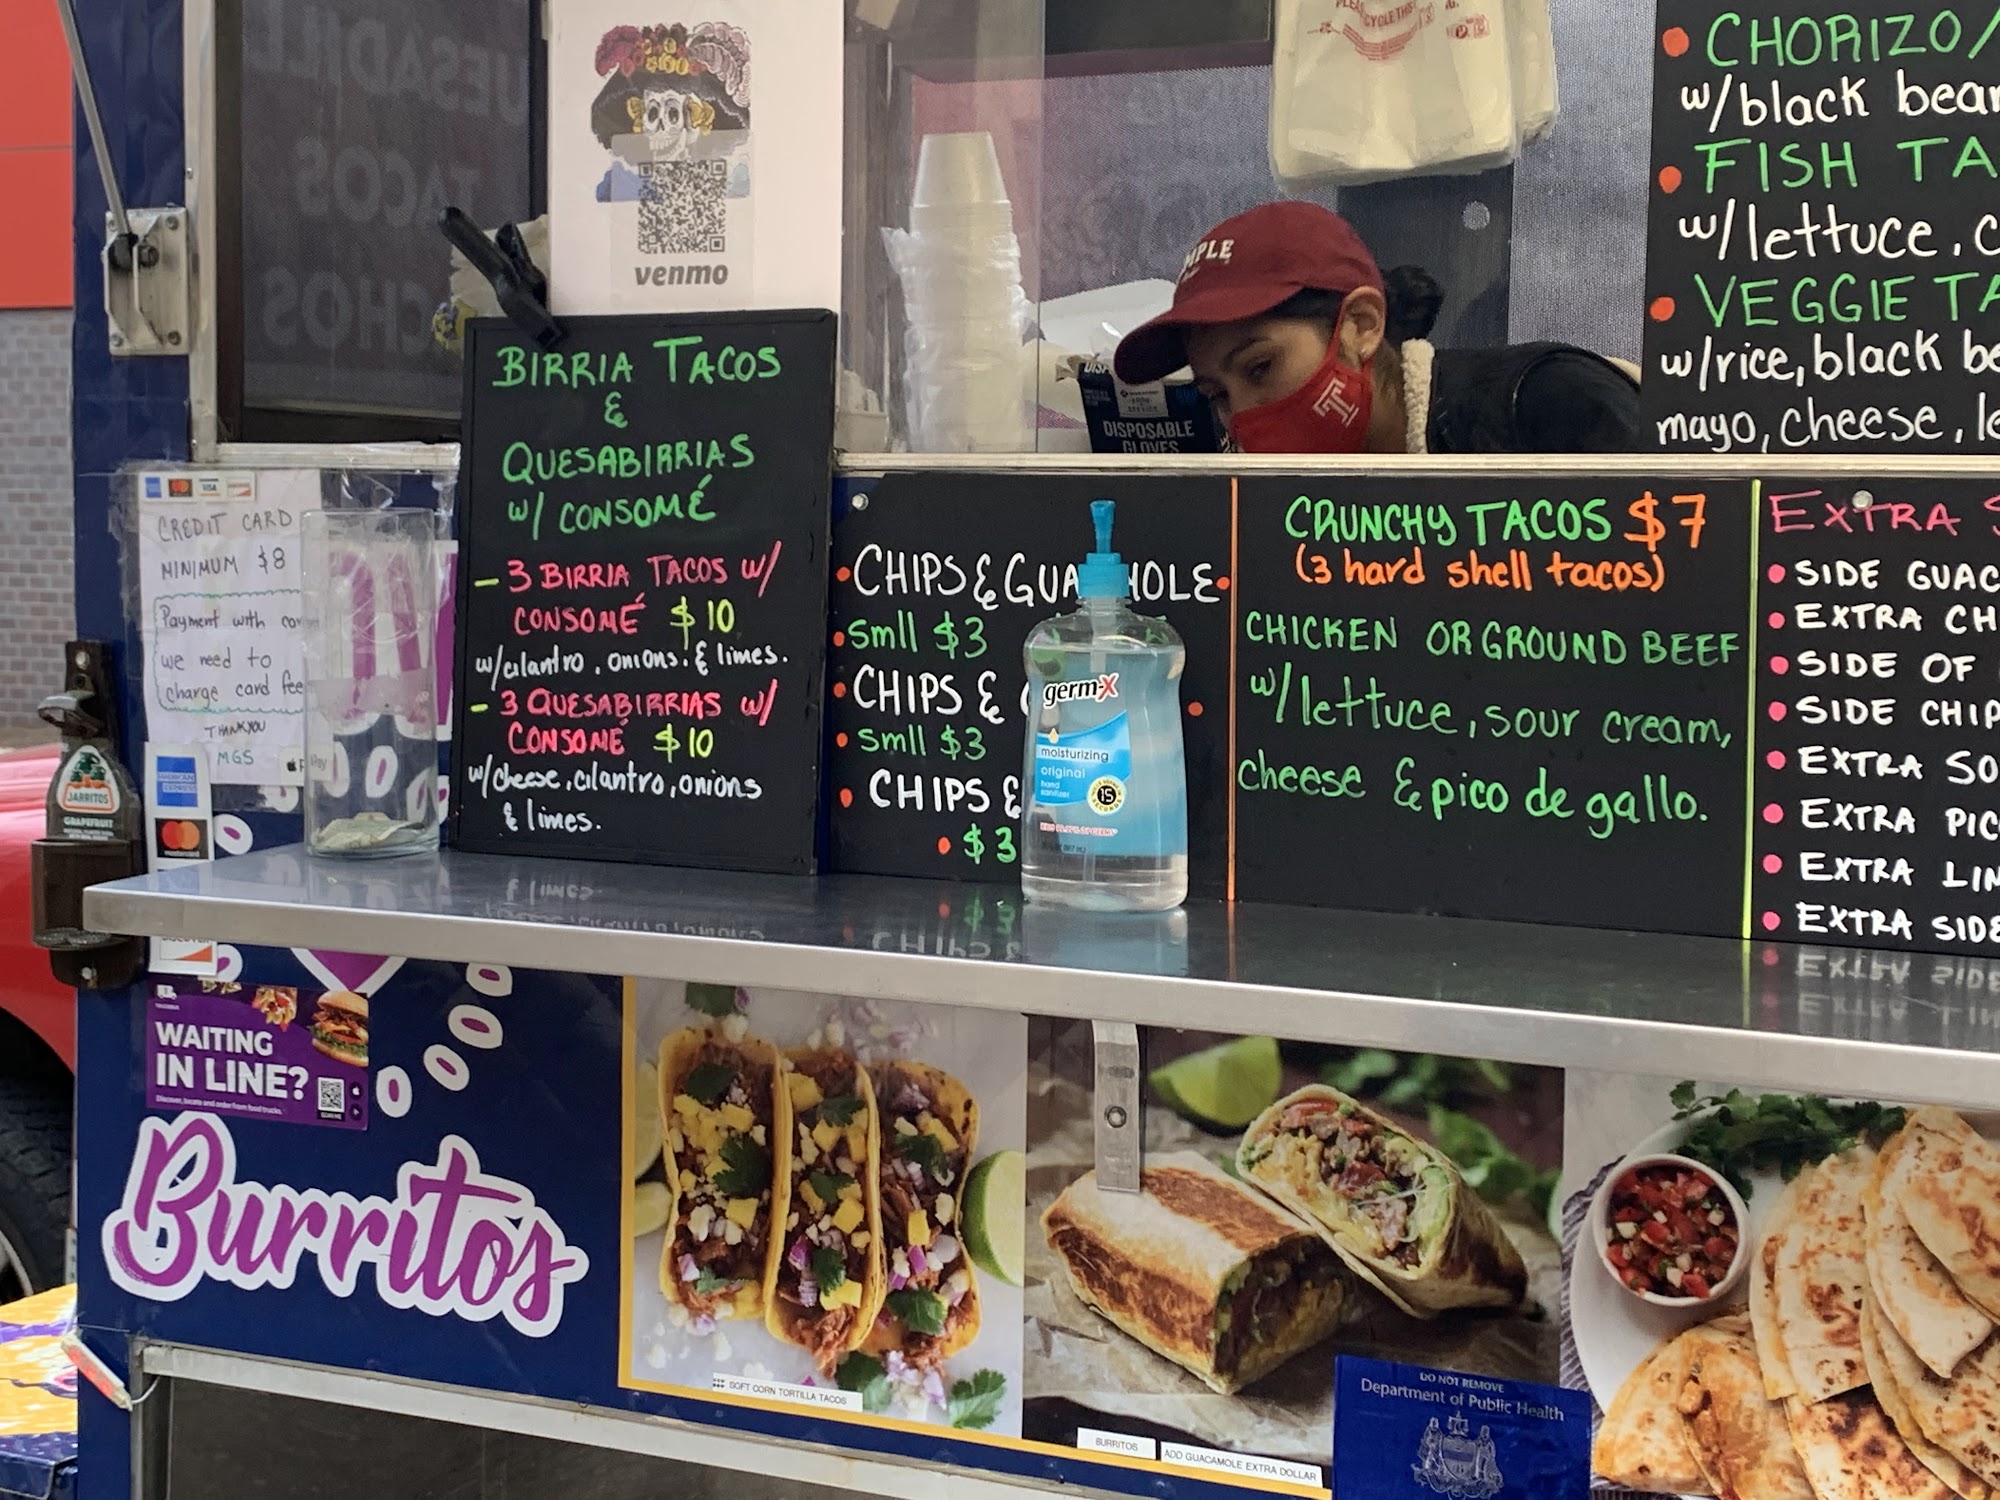 venmo
BIRRIA TACOS
&
QUESABIRRIAS
w/ CONSOMÉ
- 3 BIRRIA TACOS w/
CONSOMÉ $10
w/cilantro, onions, & limes.
- 3 QUESABIRRIAS w/
CONSOMÉ $10
w/cheese, cilantro, onions
& limes.
CREDIT CARD
MINIMUM $8
Payment with
we need to
charge card fee
THANKYOU
MGS
Pay
AMERICAN EXPRESS
mastercard
VISA
DISCOVER
JARRITOS
GRAPEFRUIT
CHIPS & GUA HOLE
smll $3
CHIPS &
smll $3
CHIPS &
$3
germ-X
moisturizing
original
hand
sanitizer
15
DISPOSABLE
GLOVES
MPLE
T
CRUNCHY TACOS $7
(3 hard shell tacos)
CHICKEN OR GROUND BEEF
w/lettuce, sour cream,
cheese & pico de gallo.
CHORIZO/
w/black bea
FISH TA
w/lettuce, c
VEGGIE TA
w/rice, black be
mayo, cheese, le
EXTRA
SIDE GUAC
EXTRA CH
SIDE OF
SIDE CHIP
EXTRA SO
EXTRA PIC
EXTRA LI
EXTRA SIDE
WAITING
IN LINE?
Discover, locate and order from food trucks.
Burritos
SOFT CORN TORTILLA TACOS
BURRITOS
ADD GUACAMOLE EXTRA DOLLAR
DO NOT REMOVE
Department of Public Health